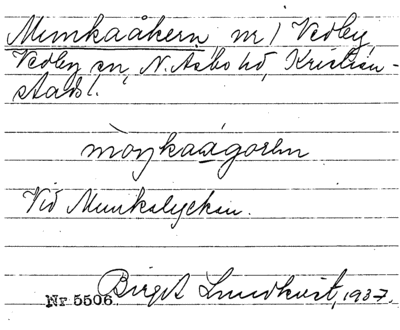 Munkaåkern nr 1 Vedby
Vedby sn, N. Åsbo hd, Kristian-
stads l.
Vid Munkalyckan.
Nr 5506 Birgit Lundkvist, 1937.